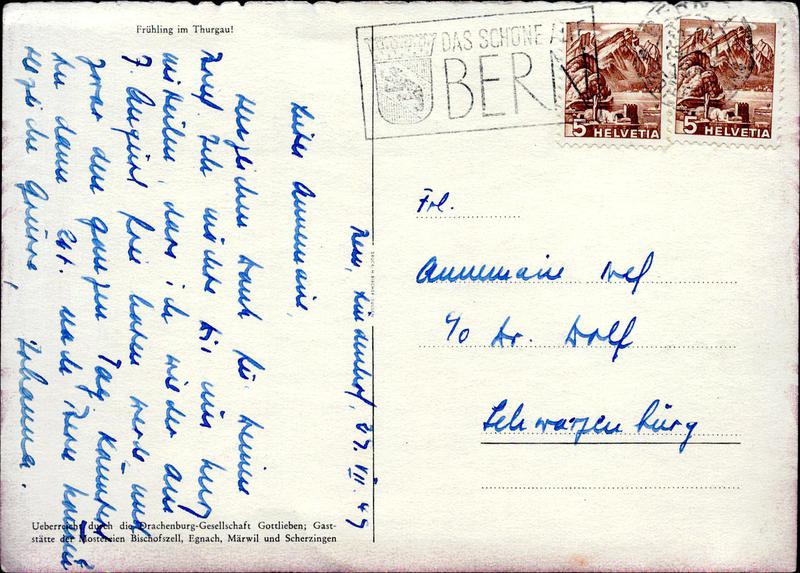 Frühling im Thurgau!
DAS SCHÖNE
BERN
5 HELVETIA
5 HELVETIA
Bern, Lindenhof, 27. VII. 49
Liebe Annemarie,
Herzlichen Dank für Deinen
Brief. Ich möchte Dir nur kurz
mitteilen, dass ich wieder am
7. August frei haben werde und
zwar den ganzen Tag. Könntest
Du dann evt. nach Bern kommen
Herzliche Grüsse,
Johanna.
Frl.
Annemarie
c/o Dr. Dolf
Schwarzenburg
Ueberreicht durch die Drachenburg-Gesellschaft Gottlieben; Gast-
stätte der Mostereien Bischofszell, Egnach, Märwil und Scherzingen